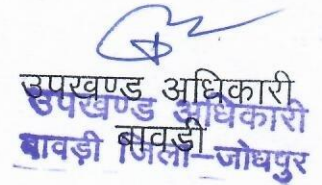 उपखण्ड अधिकारी
उपखण्ड अधिकारी
बावड़ी
बावड़ी जिला-जोधपुर